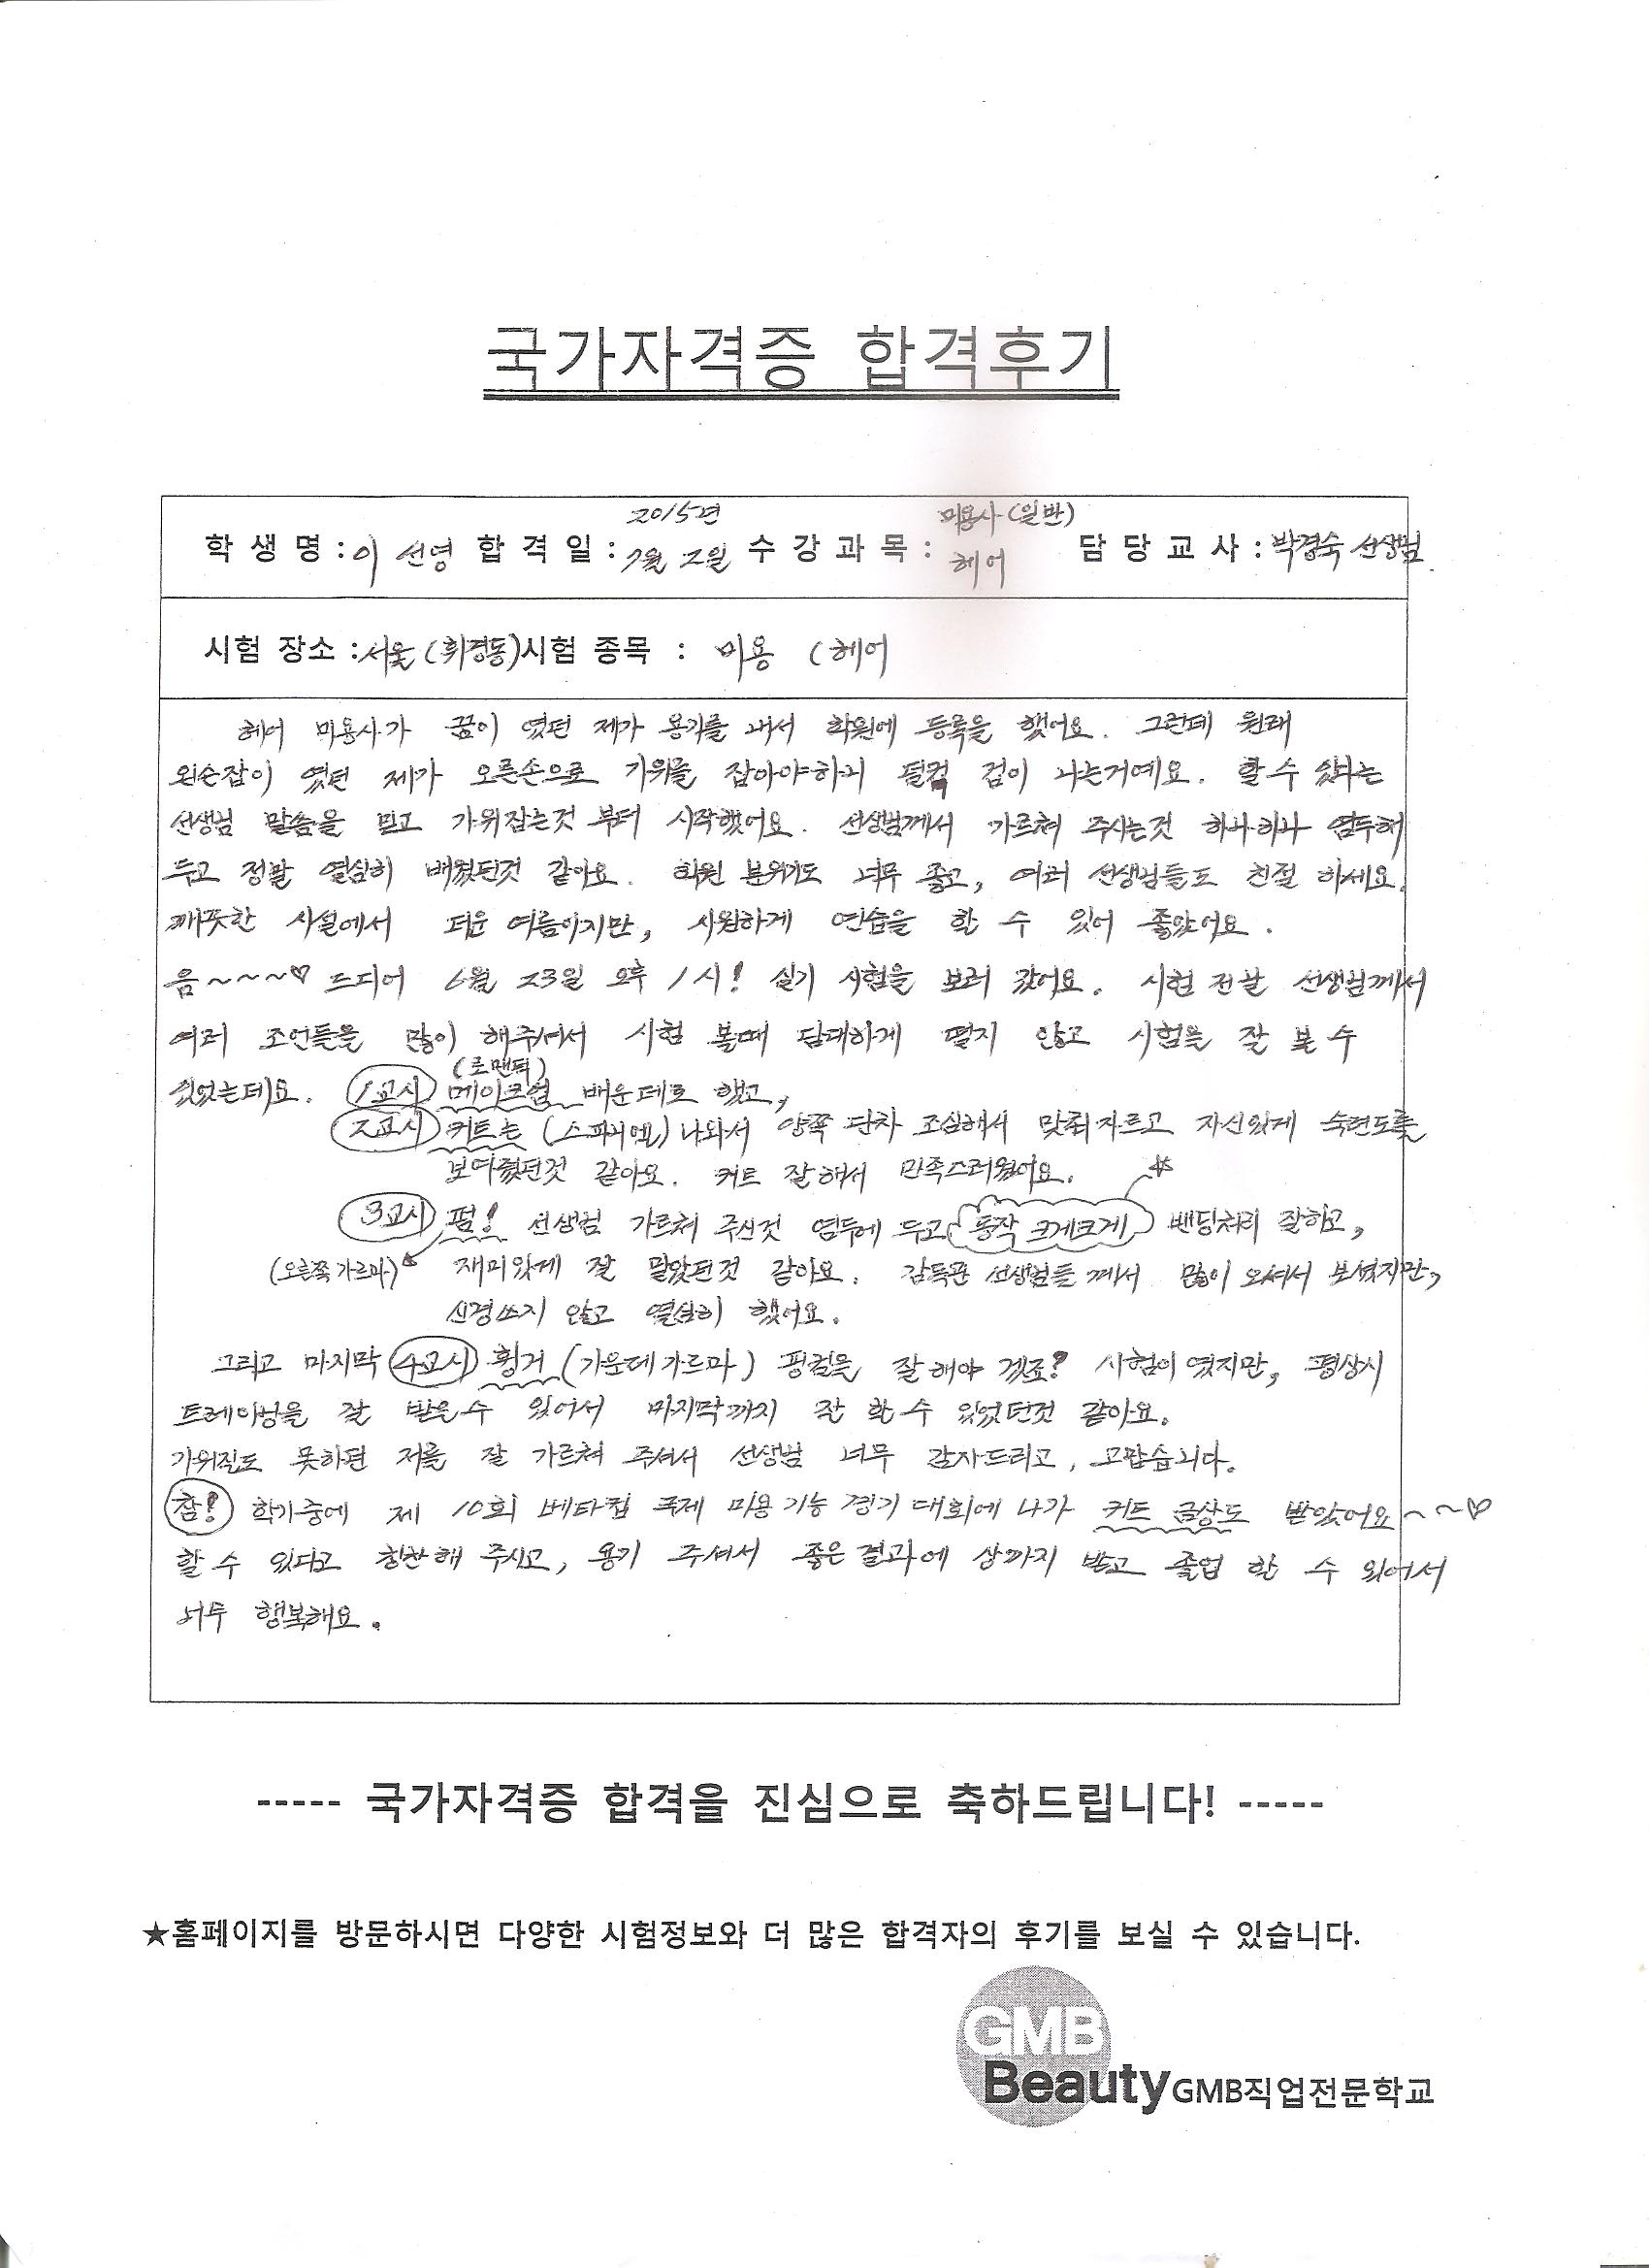 국가자격증 합격후기
2015년 미용사(일반)
학 생 명 : 이 선영 합 격 일 : 7월 2일 수 강 과 목 : 헤어 담 당 교 사 : 박경숙 선생님.
시험 장소 : 서울(휘경동) 시험 종목 : 미용 (헤어
헤어 미용사가 꿈이 였던 제가 용기를 내서 학원에 등록을 했어요. 그런데 원래
왼손잡이 였던 제가 오른손으로 가위를 잡아야하니 덜컥 겁이 나는거예요. 할수 있다는
선생님 말씀을 믿고 가위잡는것 부터 시작했어요. 선생님께서 가르쳐 주시는것 하나하나 염두해
두고 정말 열심히 배웠던것 같아요. 학원 분위기도 너무 좋고, 여러 선생님들도 친절 하세요.
깨끗한 시설에서 더운 여름이지만, 시원하게 연습을 할 수 있어 좋았어요.
음~~~♡ 드디어 6월 23일 오후 1시! 실기 시험을 보러 갔어요. 시험 전날 선생님께서
여러 조언들을 많이 해주셔서 시험 볼때 담대하게 떨지 않고 시험을 잘 볼 수
있었는데요. 1교시 메이크업 (로맨틱) 배운데로 했고,
2교시 커트는 (스파니엘) 나와서 양쪽 단차 조심해서 맞춰자르고 자신있게 숙련도를
보여줬던것 같아요. 커트 잘해서 만족스러웠어요.
3교시 펌! 선생님 가르쳐 주신것 염두에 두고 동작 크게크게 ☆ 밴딩처리 잘하고,
(오른쪽가르마) 재미있게 잘 말았던것 같아요. 감독관 선생님들 께서 많이 오셔서 보셨지만,
신경쓰지 않고 열심히 했어요.
그리고 마지막 4교시 휭거 (가운데가르마) 핑컬을 잘해야 겠죠? 시험이였지만, 평상시
트레이닝을 잘 받을수 있어서 마지막까지 잘 할수 있었던것 같아요.
가위질도 못하던 저를 잘 가르쳐 주셔서 선생님 너무 감사드리고, 고맙습니다.
참! 학기중에 제 10회 베타컵 국제 미용기능 경기 대회에 나가 커트 금상도 받았어요~~♡
할수 있다고 칭찬해 주시고, 용기 주셔서 좋은결과에 상까지 받고 졸업 할 수 있어서
너무 행복해요.
----- 국가자격증 합격을 진심으로 축하드립니다! -----
★홈페이지를 방문하시면 다양한 시험정보와 더 많은 합격자의 후기를 보실 수 있습니다.
GMB
Beauty GMB직업전문학교